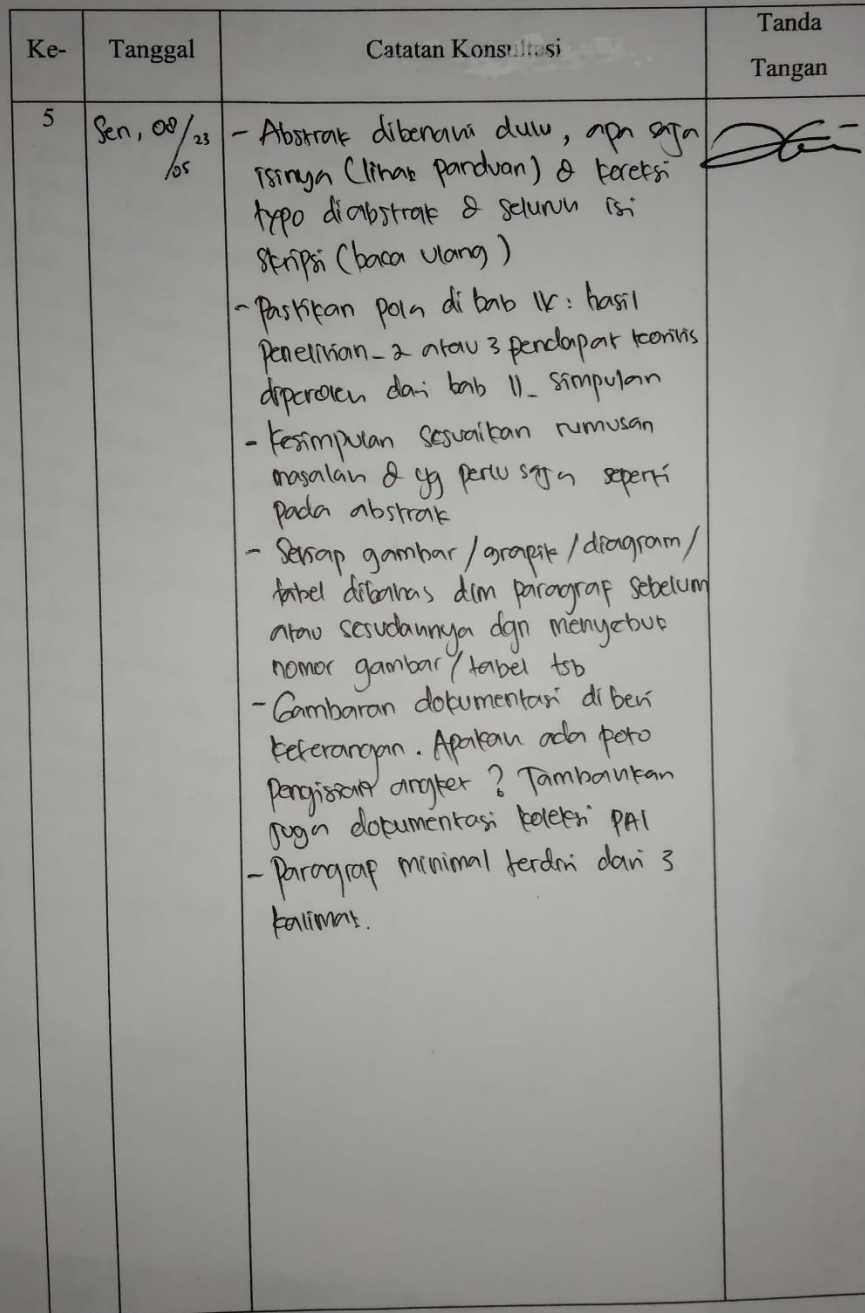 Ke-
Tanggal
Catatan Konsultasi
Tanda
Tangan
5
Sen, 08/05/23
- Abstrak dibenahi dulu, apa saja
isinya (lihat panduan) & koreksi
typo diabstrak & seluruh isi
skripsi (baca ulang)
- Pastikan pola di bab IV: hasil
penelitian_2 atau 3 pendapat teoritis
diperoleh dari bab II_ simpulan
- Kesimpulan sesuaikan rumusan
masalah & yg perlu saja seperti
pada abstrak
- Setiap gambar/grapik/diagram/
tabel dibahas dlm paragraf sebelum
atau sesudahnya dgn menyebut
nomor gambar/tabel tsb
- Gambaran dokumentasi diberi
keterangan. Apakah ada poto
pengisian angket? Tambahkan
juga dokumentasi koleksi PAI
- Paragrap minimal terdiri dari 3
kalimat.